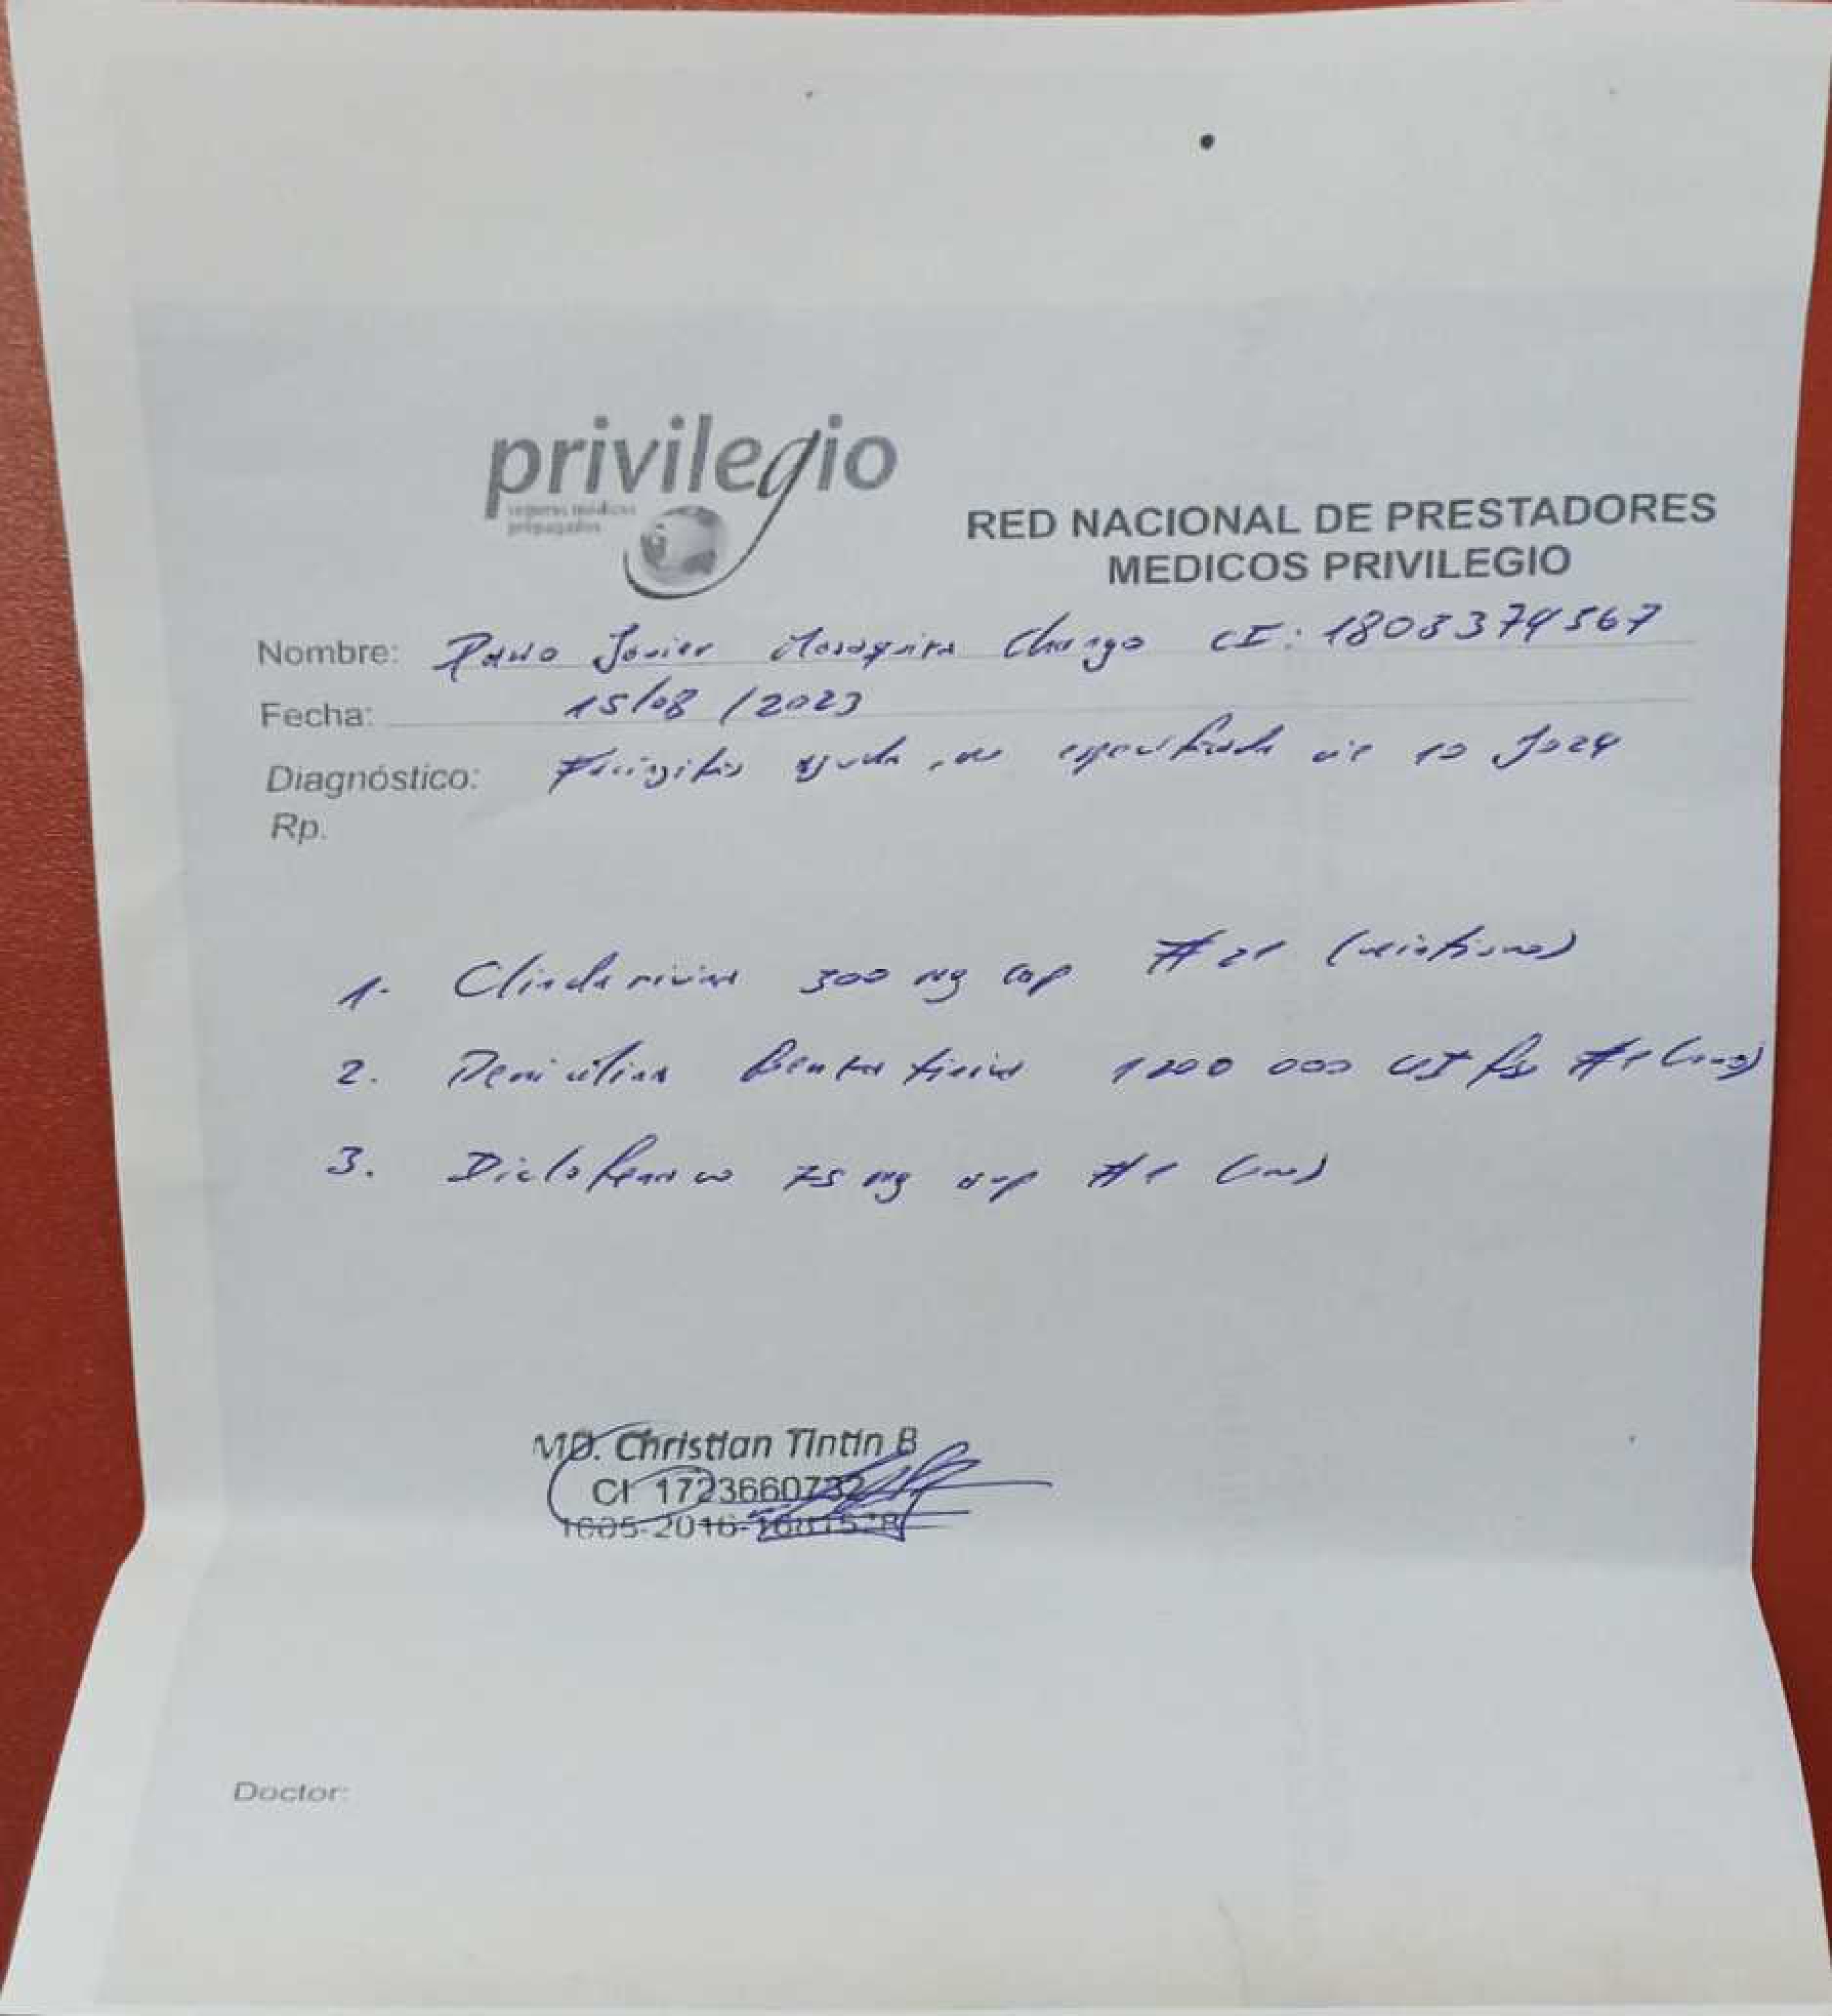 privilegio
seguros médicos
prepagados
RED NACIONAL DE PRESTADORES
MEDICOS PRIVILEGIO
Nombre: Javier Chango CI: 1803379567
Fecha: 15/08/2023
Diagnóstico: aguda, no especificada cie 10 J029
Rp.
1. 300 mg cap #21 (veintiuno)
2. 1200 000 UI #1 (uno)
3. Diclofenaco 75 mg amp #1 (uno)
MD. Christian Tintin B
CI 1723660732
1005-2016-
Doctor: